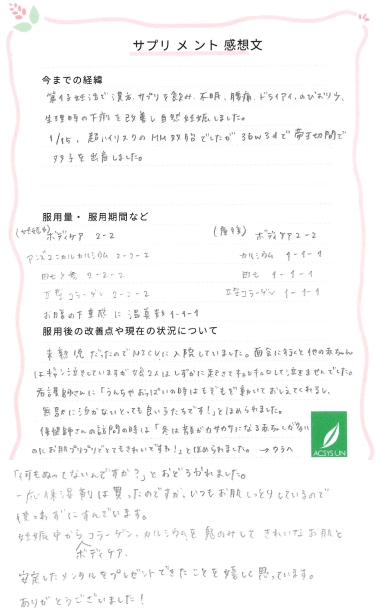 サプリメント感想文
今までの経緯
第1子妊活で漢方、サプリを飲み、不眠、腰痛、ドライアイ、のぼせ、
生理時の下痢を改善し自然妊娠しました。
1/15、超ハイリスクのMM双胎でしたが36w3dで帝王切開で
双子を出産しました。
服用量・服用期間など
(妊娠中) ボディケア 2-2
アンズコニカルカルシウム 2-2-2
田七人参 2-2-2
II型コラーゲン 2-2-2
お腹の下垂感に 1-1-1
(産後) ボディケア 2-2
カルシウム 1-1-1
田七 1-1-1
II型コラーゲン 1-1-1
服用後の改善点や現在の状況について
未熟児だったのでNICUに入院していました。面会に行くと他の赤ちゃん
はギャン泣きしていますが双子2人はしずかに起きてキョロキョロして泣きませんでした。
看護師さんに「うんちやおっぱいの時はモゾモゾ動いておしえてくれるし、
無駄に泣かないとっても良い子たちです!」とほめられました。
保健師さんの訪問の時は「冬は頬がカサカサになる赤ちゃんが多い
のにお肌プリプリでとてもきれいですね!」とほめられました。→ウラへ
ACSYSUN
「何もぬってないんですか?」とおどろかれました。
一応保湿剤は買ったのですが、いつもお肌しっとりしているので
使わずにすんでいます。
妊娠中からコラーゲン、カルシウム、ボディケアを飲みして きれいなお肌と
安定したメンタルをプレゼントできたことを嬉しく思っています。
ありがとうございました!